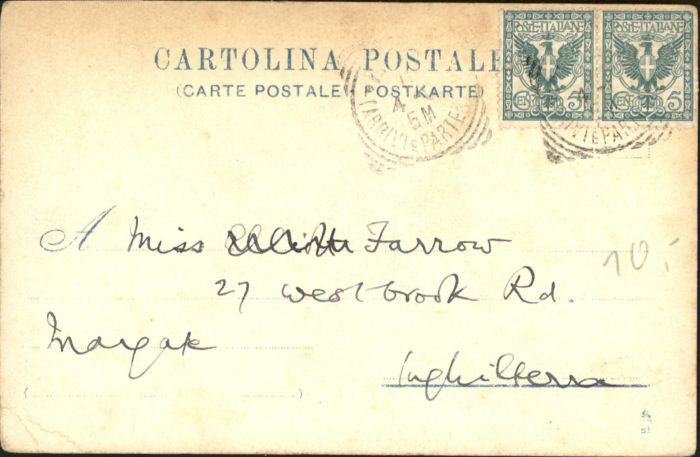 CARTOLINA POSTALE
(CARTE POSTALE POSTKARTE)
POSTE ITALIANE
CENT. 5
POSTE ITALIANE
CENT. 5
4
5 M
(ARRIVI E PARTENZE)
A Miss Farrow
27 Westbrook Rd.
Margate
Inghilterra
10.-